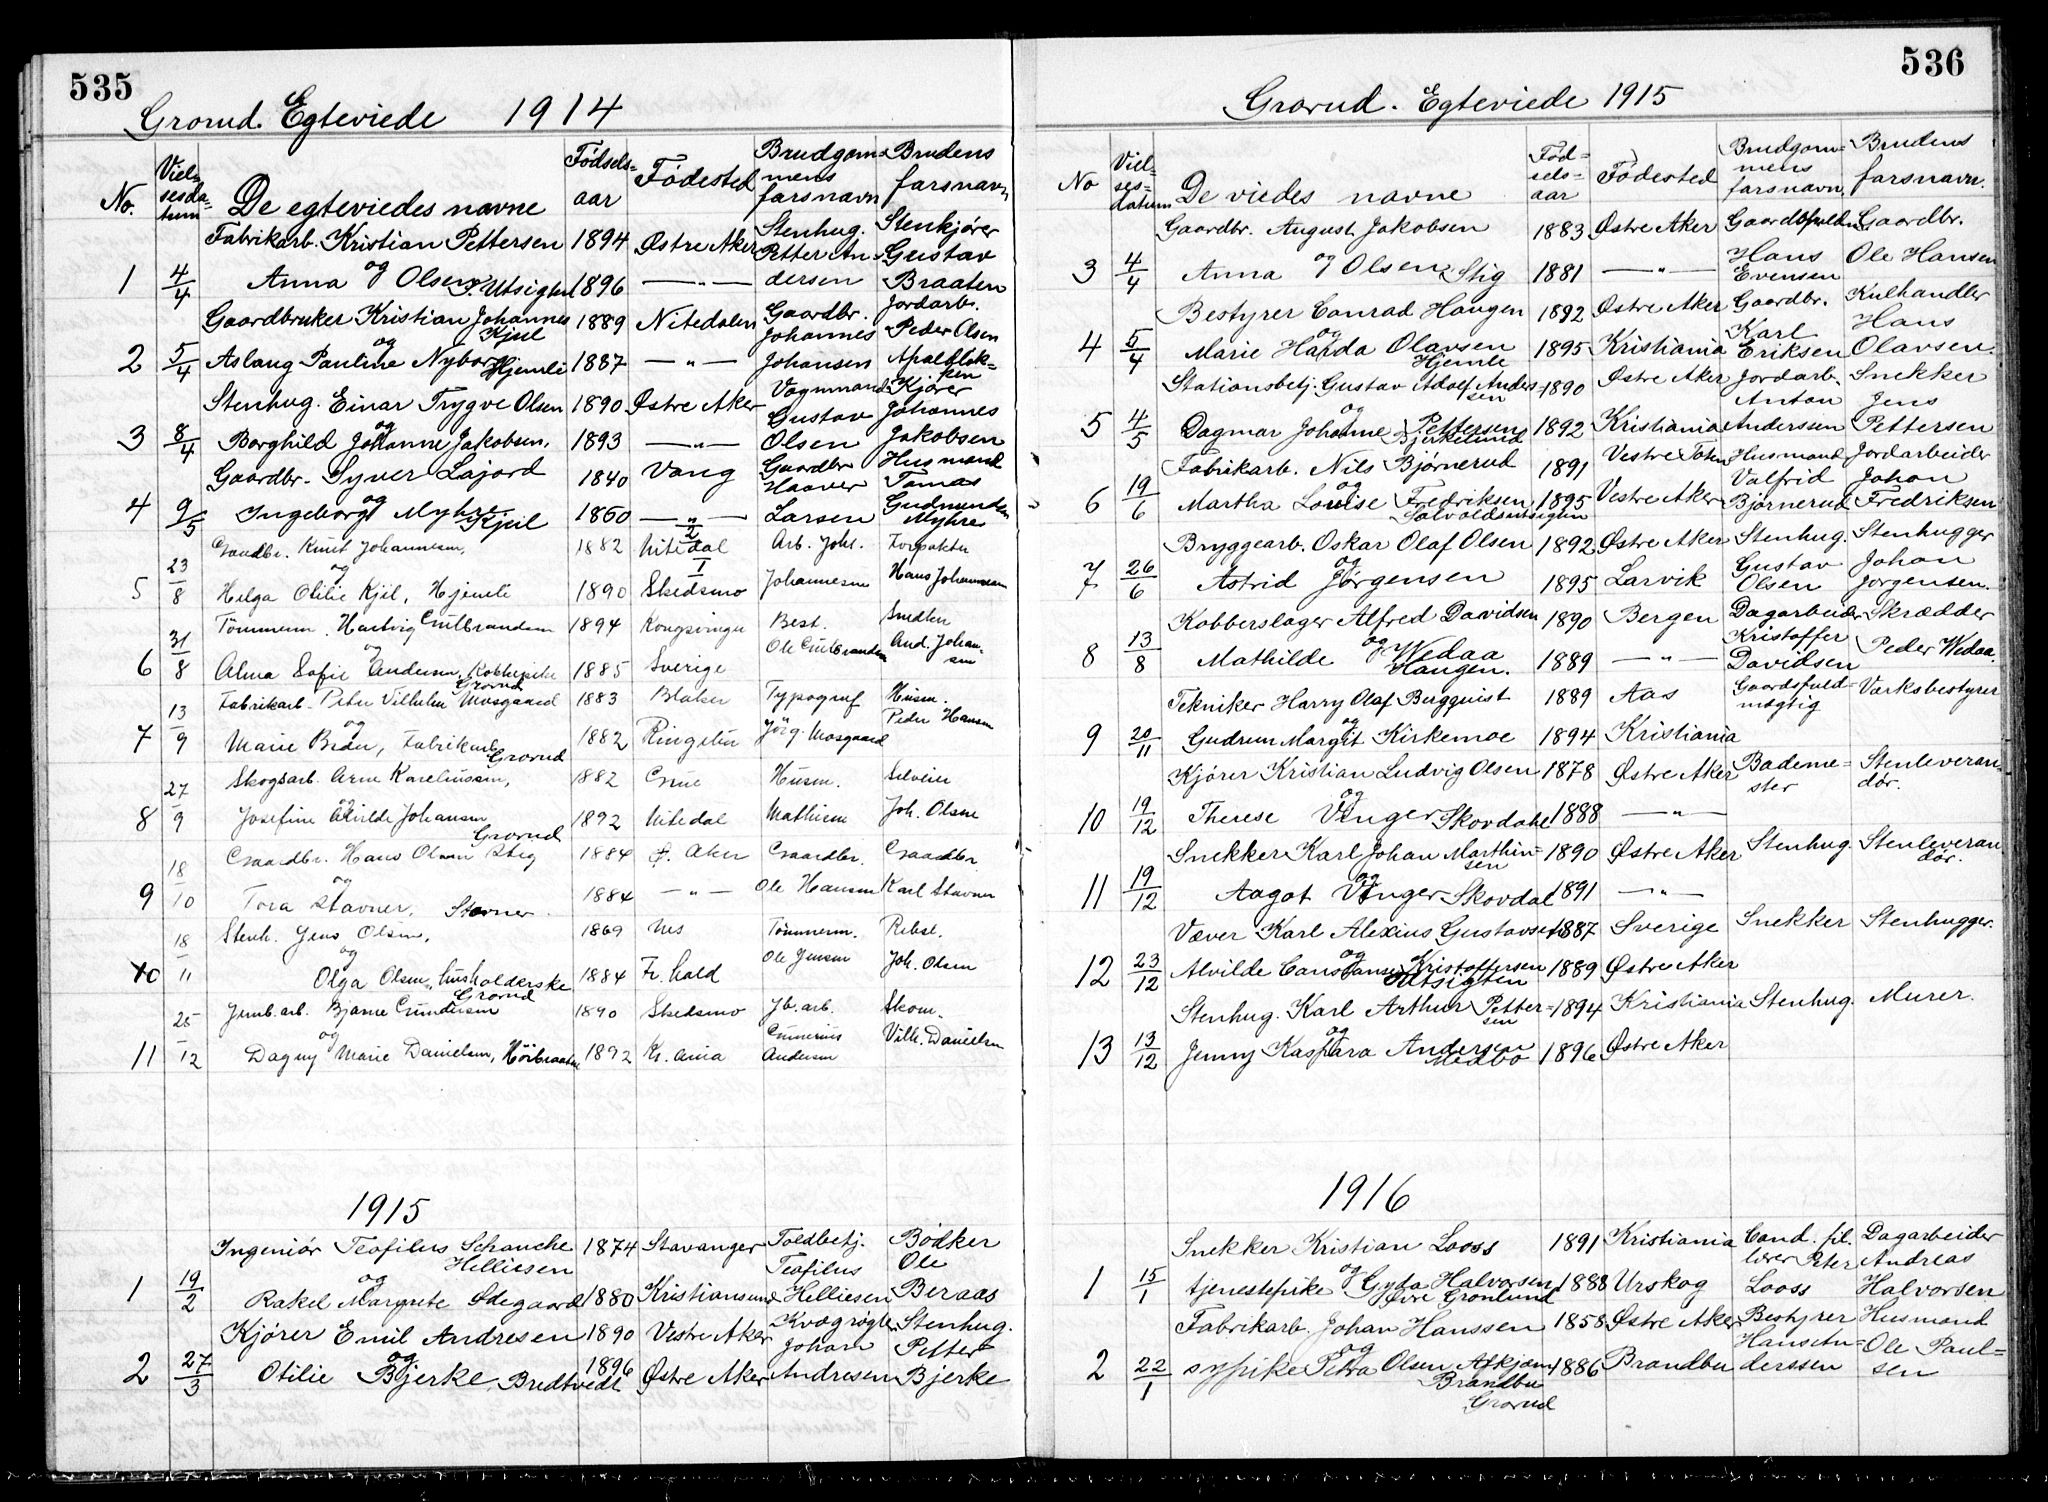 535
Grorud. Egteviede 1914
No. Viel=sesda=tum De egteviedes navne Fødsels=aar Fødested Brudgom=mens farsnavn Brudens farsnavn
Fabrikarb. Kristian Pettersen 1894 Østre Aker Stenhug. Petter An= Stenkjører Gustav
1 4/4 Anna og Olsen, Utsigten 1896 —"— dersen Braaten
Gaardbruker Kristian Johannes Kjul 1889 Nitedalen Gaardbr. Johannes Jordarb. Peder Olsen
2 5/4 Aslaug Pauline og Nybor Hjemli 1887 —"— Johansen
Stenhug. Einar Trygve Olsen 1890 Østre Aker Vognmand Gustav Kjører Johannes
3 8/4 Borghild Johanne og Jakobsen. 1893 —"— Olsen Jakobsen
Gaardbr. Syver Lajord 1840 Vang Gaardbr Haaver Husmand Tomas
4 9/5 Ingeborg og Myhre Kjul 1860 —"— Larsen Gudmundsen Myhre
Gaardbr. Knut Johannesen, 1882 Nitedal Arb. Johs. Forpakter
og
5 23/8 Helga Otilie Kjil, Hjemli 1890 Skedsmo Johannesen Hans Johannesen
Tömmerm. Hartvig Gulbrandsen 1894 Kongsvinger Best. Ole Gulbrandsen Smdten And. Johan=sen
6 31/8 Alma Sofie og Andersen, Grorud 1885 Sverige
Fabrikarb. Peter Vilhelm Mosgaard 1883 Blaker Typograf Husm.
og Peder Hansen
7 13/9 Marie Braen, Fabrikarb. Grorud 1882 Ringsted Jörg. Mosgaard
Skogsarb. Arne Kareliussen, 1882 Grue Husm. Selveier
8 27/9 Josefine og Alvilde Johansen Grorud 1892 Nitedal Mathisen Joh. Olsen
Gaardbr. Hans Olsen Stig 1884 Ø. Aker Gaardbr. Gaardbr.
og
9 18/10 Tora Stavner, Stovner 1884 —"— Ole Hansen Karl Stavner
Stenh. Jens Olsen, 1869 Nes Tömmerm. Rebsl.
og
10 18/11 Olga Olsen, husholderske Grorud 1884 Fr. hald Ole Jensen Joh. Olsen
Jernb. arb. Bjarne Gundersen 1890 Skedsmo Jb. arb. Skom.
og
11 25/12 Dagny Marie Danielsen, Höibraaten 1892 Kr. ania Gunerius Andersen Vilh. Danielsen
1915
Ingeniør Teofilus Schanche Helliesen 1874 Stavanger Toldbetj. Teofilus Bødker Ole
1 19/2 Rakel Margrete og Ødegaard 1880 Kristiansund Helliesen Beraas
Kjører Emil Andresen 1890 Vestre Aker Kvægrøgter Johan Stenhug. Petter
2 27/3 Otilie og Bjerke, Bredtvedt 1896 Østre Aker Andresen Bjerke
536
Grorud. Egteviede 1915
No Viel=ses=datum De viedes navne Fød=sels=aar Fødested Brudgom=mens farsnavn Brudens farsnavn.
Gaardbr. August Jakobsen 1883 Østre Aker Gaardbr.
3 4/4 Anna og Olsen, Stig 1881 —"— Hans Evensen Ole Hansen
Bestyrer Conrad Haugen 1892 Østre Aker Gaardbr. Karl Kulhandler Hans
4 5/4 Marie Harda og Olavsen Hjemle 1895 Kristiania Eriksen Olavsen.
Stationsbetj. Gustav Adolf Anders=sen 1890 Østre Aker Jordarb. Anton Snekker Jens
5 4/5 Dagmar Johanne og Pettersen Bjerkelund 1892 Kristiania Anderssen Pettersen
Fabrikarb. Nils Bjørnerud 1891 Vestre Toten Husmand Valfrid Jordarbeider Johan
6 19/6 Martha Lovise og Fredriksen, 1895 Vestre Aker Bjørnerud Fredriksen
Bryggearb. Oskar Olaf Olsen 1892 Østre Aker Stenhug. Gustav Stenhugger Johan
7 26/6 Astrid og Jørgensen 1895 Larvik Olsen Jørgensen.
Kobberslager Alfred Davidsen 1890 Bergen Dagarbeider Kristoffer Skrædder
8 13/8 Mathilde og Wedaa Haugen. 1889 —"— Davidsen Peder Wedaa.
Tekniker Harry Olaf Bergquist 1889 Aas Gaardsfuld=mægtig Værksbestyrer
9 20/11 Gudrun Margit og Kirkemoe 1894 Kristiania
Kjører Kristian Ludvig Olsen 1878 Østre Aker Bademe=ster Stenleveran=dør.
10 19/12 Therese og Venger Skovdahl 1888 —"—
Snekker Karl Johan Marthin=sen 1890 Østre Aker Stenhug. Stenleveran=dør.
11 19/12 Aagot og Venger Skovdal 1891 —"—
Væver Karl Alexius Gustavsen 1887 Sverige Snekker Stenhugger.
12 23/12 Alvilde Constanse og Kristoffersen Utsigten 1889 Østre Aker
Stenhug. Karl Arthur Petter=sen 1894 Kristiania Stenhug. Murer.
13 13/12 Jenny Kaspara og Andersen Medbo 1896 Østre Aker
1916
Snekker Kristian Looss 1891 Kristiania Cand. fil. lærer Peter Dagarbeider Andreas
1 15/1 tjenestepike og Gyda Halvorsen Øvre Grønlund 1888 Urskog Looss Halvorsen
Fabrikarb. Johan Hanssen 1858 Østre Aker Bestyrer Hans An= Husmand Ole Paul=
2 22/1 sypike Petra og Olsen Brandbu Grorud 1886 Brandbu derssen sen